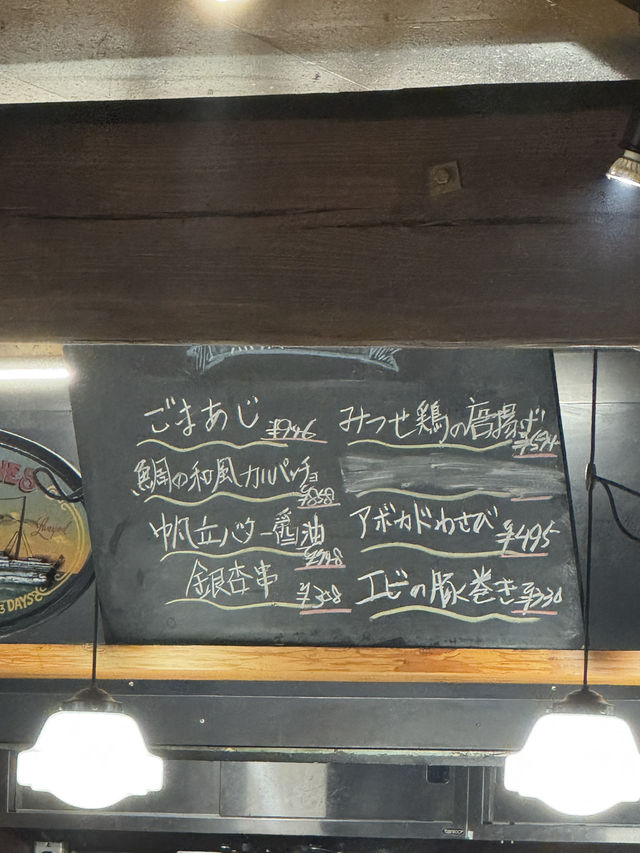 ごまあじ ¥946
鯛の和風カルパッチョ ¥858
帆立バター醤油
銀杏串 ¥308
みつせ鶏の唐揚げ ¥594
アボカドわさび ¥495
エビの豚巻き ¥330
3 DAYS